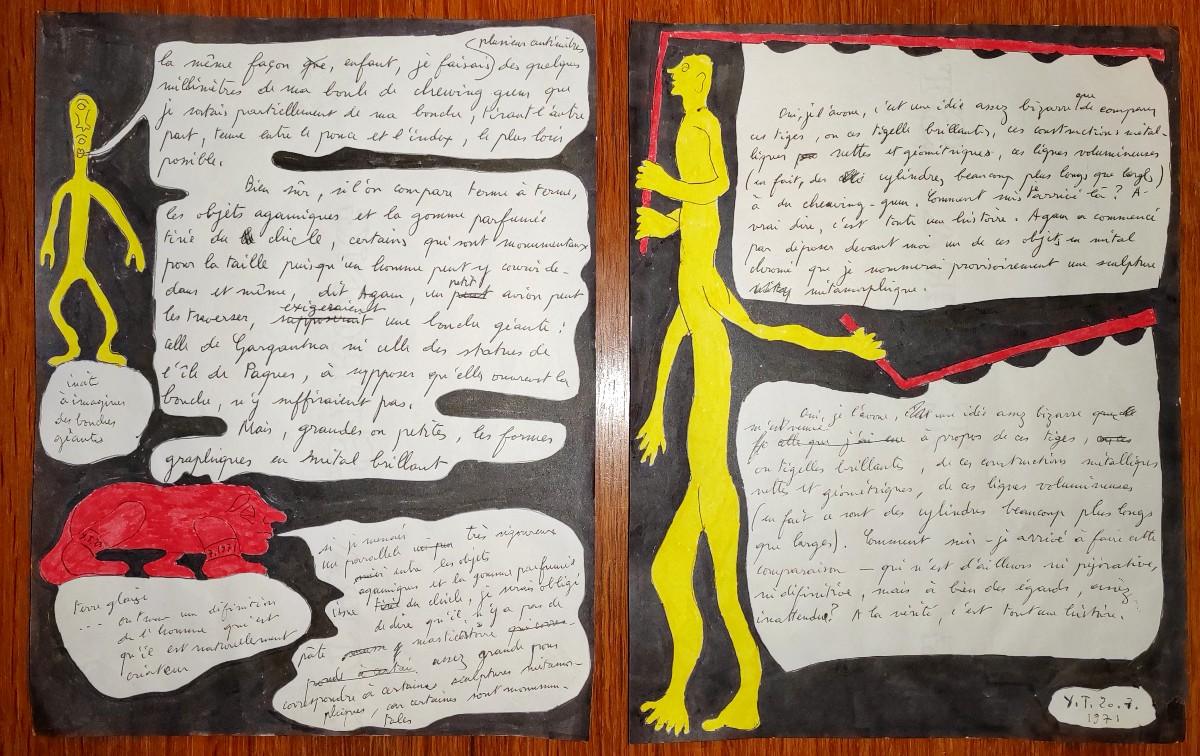 (plusieurs centimètres
la même façon que, enfant, je faisais) des quelques
millimètres de ma boule de chewing gum que
je sortais partiellement de ma bouche, tirant l'autre
part, tenue entre le pouce et l'index, le plus loin
possible.
Bien sûr, si l'on compare terme à terme,
les objets agamiques et la gomme parfumée
tirée du chicle, certains qui sont monumentaux
pour la taille puisqu'un homme peut y courir de-
dans et même, dit Agam, un petit avion peut
les traverser, supposerait exigeraient une bouche géante :
celle de Gargantua ni celle des statues de
l'île de Pâques, à supposer qu'elles ouvrent la
bouche, n'y suffiraient pas.
Mais, grandes ou petites, les formes
graphiques en métal brillant
inciterait
à imaginer
des bouches
géantes
Y.T.
7.1971
Terre glaise
.... on tient une définition
de l'homme qui est
qu'il est naturellement
créateur
si je menais
un parallèle très rigoureux
entre les objets
agamiques et la gomme parfumée
tirée du chicle, je serais obligé
de dire qu'il n'y a pas de
pâte masticatoire
assez grande pour
correspondre à certaines sculptures métamor-
phiques, car certaines sont monumen-
tales
Oui, je l'avoue, c'est une idée assez bizarre que de comparer
ces tiges, ou ces tigelles brillantes, ces constructions métal-
liques nettes et géométriques, ces lignes volumineuses
(en fait, des cylindres beaucoup plus longs que larges)
à du chewing-gum. Comment suis-je arrivé là ? A
vrai dire, c'est toute une histoire. Agam a commencé
par déposer devant moi un de ces objets en métal
chromé que je nommerai provisoirement une sculpture
métamorphique.
Oui, je l'avoue, une idée assez bizarre
m'est venue
à propos de ces tiges,
ou tigelles brillantes, de ces constructions métalliques
nettes et géométriques, de ces lignes volumineuses
(en fait ce sont des cylindres beaucoup plus longs
que larges). Comment suis-je arrivé à faire cette
comparaison — qui n'est d'ailleurs ni péjorative,
ni définitive, mais à bien des égards, assez
inattendue ? A la vérité, c'est toute une histoire.
Y.T. 20.7.
1971